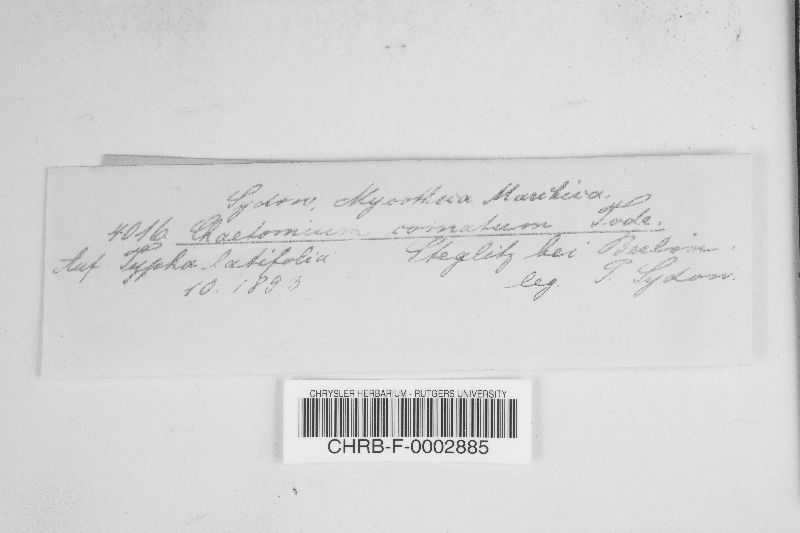 Sydow, Mycotheca Marchica.
4016. Chaetomium comatum Tode.
Auf Typha latifolia Steglitz bei Berlin.
10. 1893 leg. P. Sydow.
CHRYSLER HERBARIUM - RUTGERS UNIVERSITY
CHRB-F-0002885